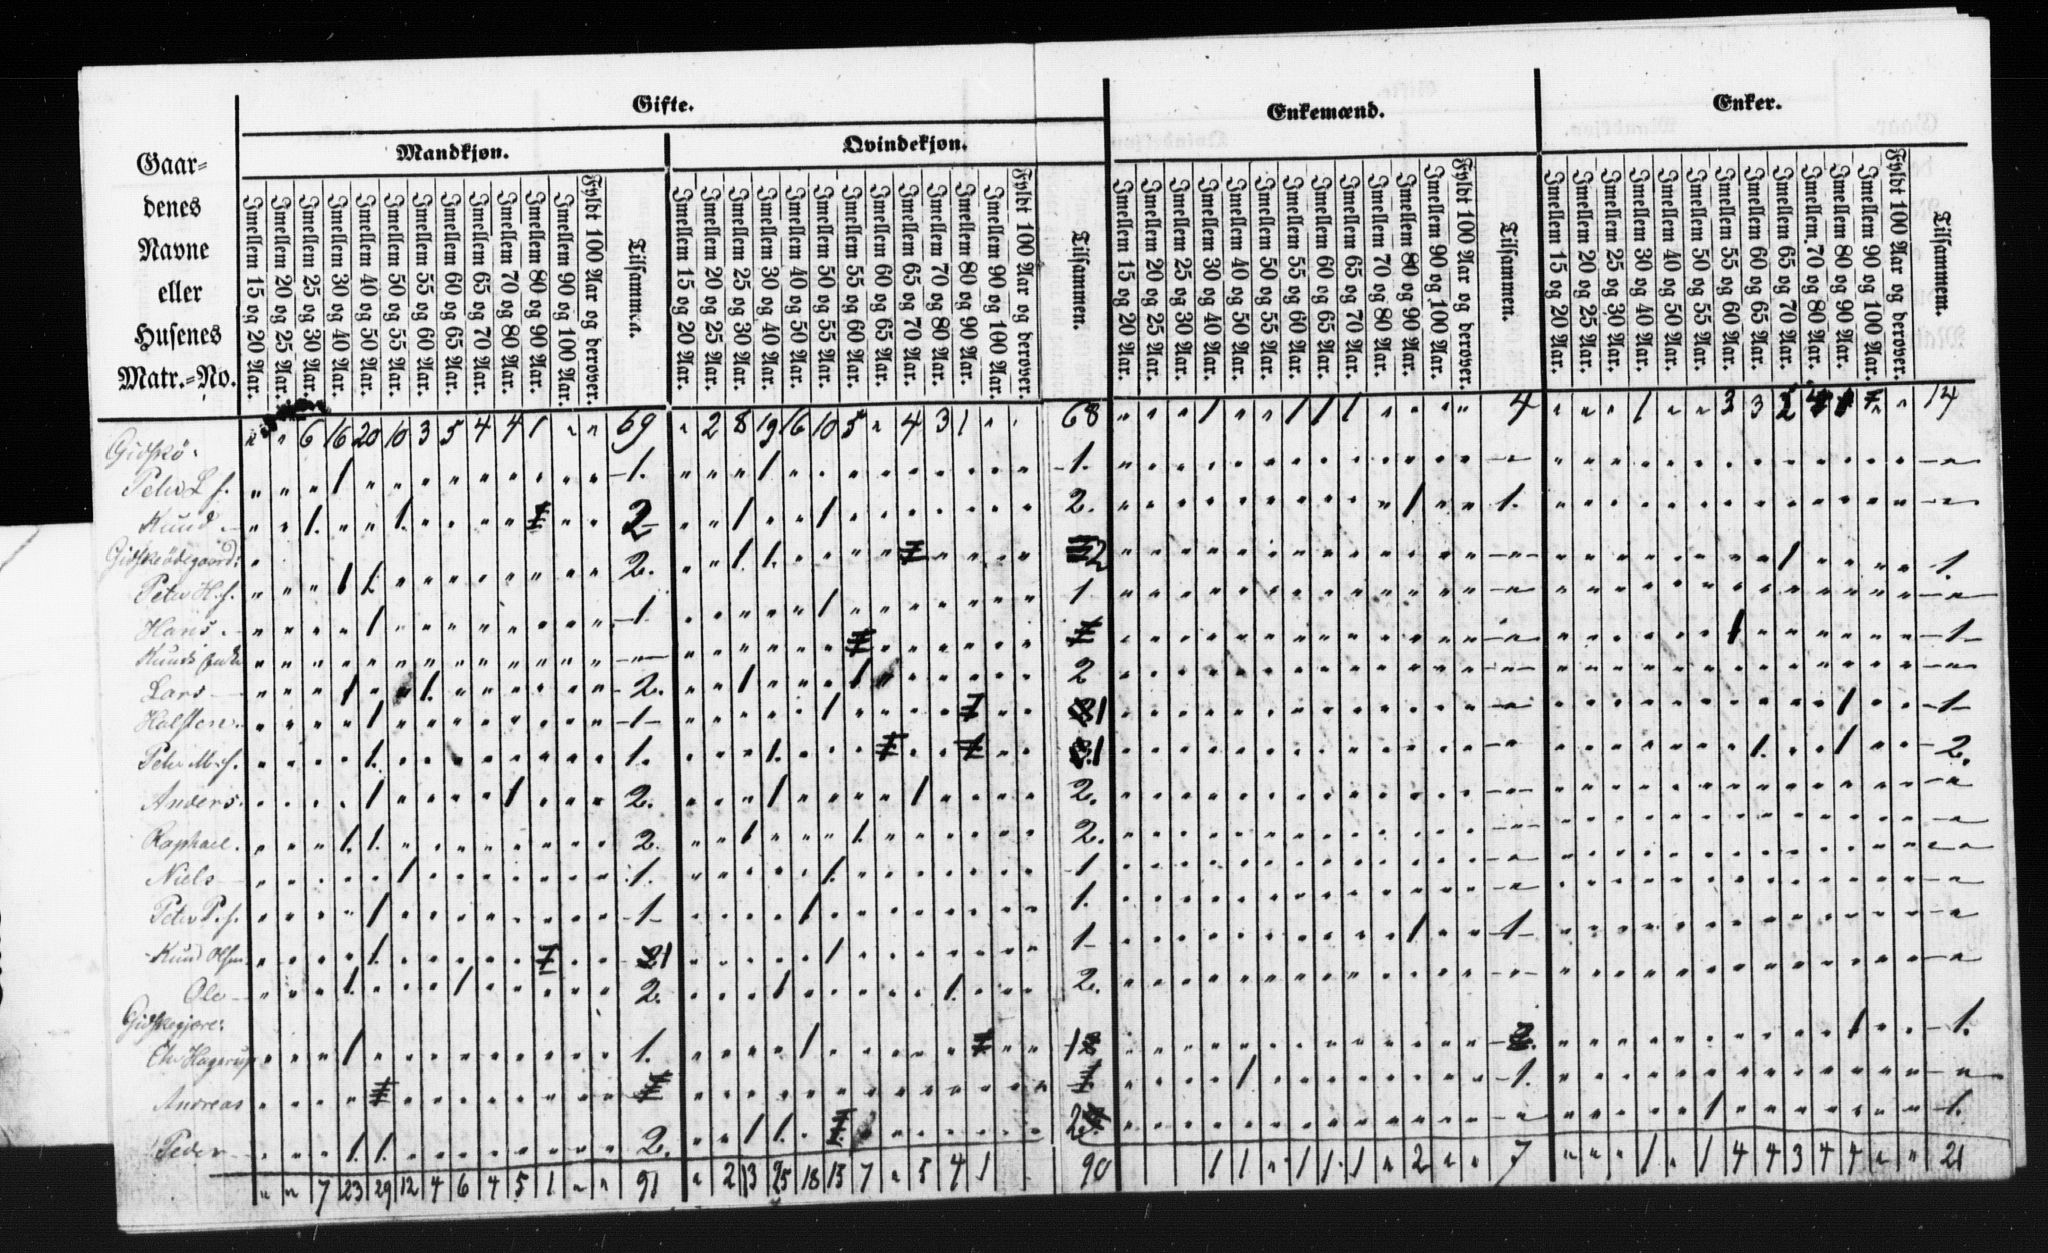 Gifte.
Enkemænd.
Enker.
Mandkjøn.
Qvindekjøn.
Gaar-
denes
Navne
eller
Husenes
Matr.-No.
Imellem 15 og 20 Aar.
Imellem 20 og 25 Aar.
Imellem 25 og 30 Aar.
Imellem 30 og 40 Aar.
Imellem 40 og 50 Aar.
Imellem 50 og 55 Aar.
Imellem 55 og 60 Aar.
Imellem 60 og 65 Aar.
Imellem 65 og 70 Aar.
Imellem 70 og 80 Aar.
Imellem 80 og 90 Aar.
Imellem 90 og 100 Aar.
Fyldt 100 Aar og derover.
Tilsammen.
Imellem 15 og 20 Aar.
Imellem 20 og 25 Aar.
Imellem 25 og 30 Aar.
Imellem 30 og 40 Aar.
Imellem 40 og 50 Aar.
Imellem 50 og 55 Aar.
Imellem 55 og 60 Aar.
Imellem 60 og 65 Aar.
Imellem 65 og 70 Aar.
Imellem 70 og 80 Aar.
Imellem 80 og 90 Aar.
Imellem 90 og 100 Aar.
Fyldt 100 Aar og derover.
Tilsammen.
Imellem 15 og 20 Aar.
Imellem 20 og 25 Aar.
Imellem 25 og 30 Aar.
Imellem 30 og 40 Aar.
Imellem 40 og 50 Aar.
Imellem 50 og 55 Aar.
Imellem 55 og 60 Aar.
Imellem 60 og 65 Aar.
Imellem 65 og 70 Aar.
Imellem 70 og 80 Aar.
Imellem 80 og 90 Aar.
Imellem 90 og 100 Aar.
Fyldt 100 Aar og derover.
Tilsammen.
Imellem 15 og 20 Aar.
Imellem 20 og 25 Aar.
Imellem 25 og 30 Aar.
Imellem 30 og 40 Aar.
Imellem 40 og 50 Aar.
Imellem 50 og 55 Aar.
Imellem 55 og 60 Aar.
Imellem 60 og 65 Aar.
Imellem 65 og 70 Aar.
Imellem 70 og 80 Aar.
Imellem 80 og 90 Aar.
Imellem 90 og 100 Aar.
Fyldt 100 Aar og derover.
Tilsammem.
" " 6 16 20 10 3 5 4 4 1 " " 69 " 2 8 19 16 10 5 " 4 3 1 " " 68 " " " 1 " " 1 1 1 " " " " 4 " " " 1 " " 3 3 14
Gidskö:
Peder L. f. 1 1. 1 1.
Knud 1. 1. 2 1 1 2. 1 1.
Gidskeödegaard:
Peter H. f. 1 1. 2. 1. 1. 2 1 1.
Hans 1 1 1 1
Knuds 1 1
Lars 1 1 2. 1 1 2
Halsten 1 1 1 1 1 1
Peder M. f. 1. 1. 1. 1 1. 1 2.
Anders. 1 1 2. 1 1 2.
Raphael. 1. 1. 2. 1 1. 2.
Niels 1 1. 1. 1
Peder P. f. 1 1 1 1.
Knud Olsen 1 1 1 1 1 1
Ole 1. 1 2. 1 1. 2.
Gidskegjære:
Ole Hagerup 1 1. 1 1 1 1.
Andreas 1 1.
Peder 1. 1. 2. 1 1. 2 1 1.
" " 7 23 29 12 4 6 4 5 1 " " 91 " 2 13 25 18 13 7 " 5 4 1 90 1 1 " 1 1 1 " 2 " " 7 " " " 1 " 1 4 4 3 4 4 " " 21